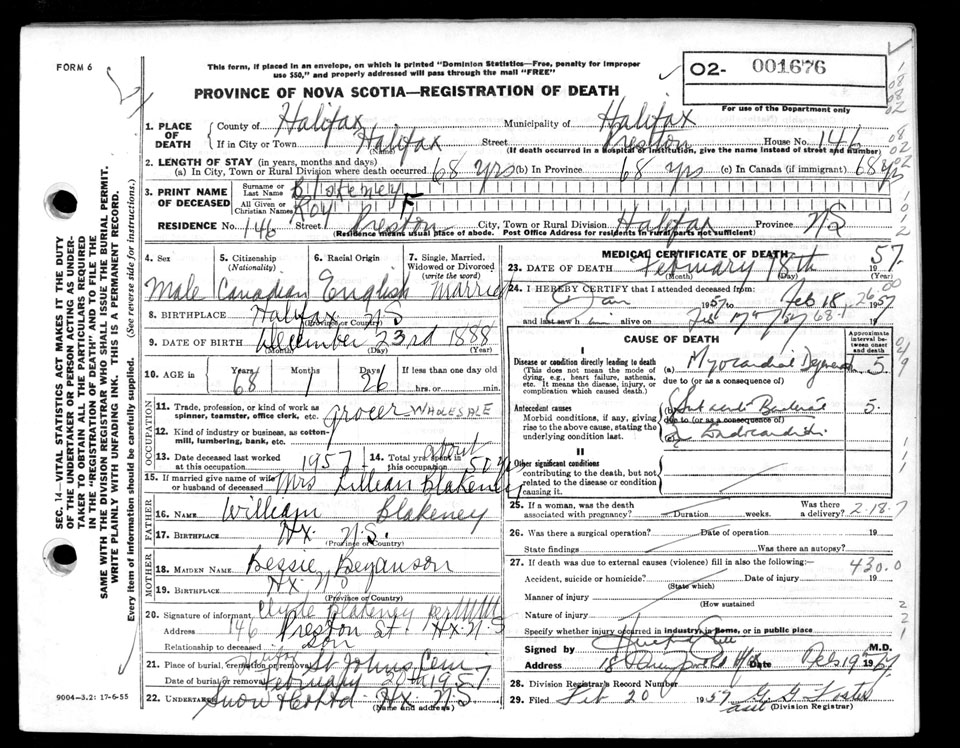 FORM 6
This form, if placed in an envelope, on which is printed "Dominion Statistics—Free, penalty for improper
use $50," and properly addressed will pass through the mail "FREE"
O2- 001676
For use of the Department only
PROVINCE OF NOVA SCOTIA—REGISTRATION OF DEATH
1. PLACE OF DEATH
County of Halifax Municipality of Halifax
If in City or Town Halifax Street Preston House No. 146
(Name) (If death occurred in a hospital or institution, give the name instead of street and number)
2. LENGTH OF STAY (in years, months and days)
(a) In City, Town or Rural Division where death occurred 68 yrs (b) In Province 68 yrs (c) In Canada (if immigrant) 68 yrs
3. PRINT NAME OF DECEASED
Surname or Last Name Blakeney
All Given or Christian Names Roy F
RESIDENCE No. 146 Street Preston City, Town or Rural Division Halifax Province NS
(Residence means usual place of abode. Post Office Address for residents in rural parts not sufficient)
4. Sex 5. Citizenship (Nationality) 6. Racial Origin 7. Single, Married, Widowed or Divorced (write the word)
Male Canadian English Married
8. BIRTHPLACE Halifax NS
(Province or Country)
9. DATE OF BIRTH December 23rd 1888
(Month) (Day) (Year)
10. AGE in Years 68 Months 1 Days 26 If less than one day old
hrs. or min.
OCCUPATION
11. Trade, profession, or kind of work as spinner, teamster, office clerk, etc. grocer WHOLESALE
12. Kind of industry or business, as cotton-mill, lumbering, bank, etc.
13. Date deceased last worked at this occupation 1957 14. Total yrs. spent in this occupation about 50 yrs
15. If married give name of wife or husband of deceased Mrs Lillian Blakeney
FATHER
16. NAME William Blakeney
17. BIRTHPLACE Hx. N.S.
(Province or Country)
MOTHER
18. MAIDEN NAME Bessie Beganson
19. BIRTHPLACE Hx NS
(Province or Country)
20. Signature of informant Clyde Blakeney per
Address 146 Preston St. Hx. N.S
Relationship to deceased son
21. Place of burial, cremation or removal St Johns Cem
Date of burial or removal February 20th 1957
22. UNDERTAKER Snow & Co Ltd Hx NS
(Name and address)
MEDICAL CERTIFICATE OF DEATH
23. DATE OF DEATH February 18th 1957.
(Month) (Day) (Year)
24. I HEREBY CERTIFY that I attended deceased from
Jan 1957 to Feb 18, 1957
and last saw him alive on Feb 17 19
CAUSE OF DEATH
Approximate interval between onset and death
I
Disease or condition directly leading to death
(This does not mean the mode of dying, e.g., heart failure, asthenia, etc. It means the disease, injury, or complication which caused death.)
(a) Myocardial 5.
due to (or as a consequence of)
Antecedent causes
Morbid conditions, if any, giving rise to the above cause, stating the underlying condition last.
(b) 5.
due to (or as a consequence of)
Endocarditis
II
Other significant conditions
contributing to the death, but not related to the disease or condition causing it.
25. If a woman, was the death associated with pregnancy? Duration weeks. Was there a delivery? 2-18-7
26. Was there a surgical operation? Date of operation 19
State findings Was there an autopsy?
27. If death was due to external causes (violence) fill in also the following:— 430.0
Accident, suicide or homicide? Date of injury 19
(State which)
Manner of injury
(How sustained)
Nature of injury
Specify whether injury occurred in industry, in home, or in public place
Signed by M.D.
Address Date Feb 19 1957
28. Division Registrar's Record Number
29. Filed Feb 20 1957 G. G. Foster
asst (Division Registrar)
SEC. 14—VITAL STATISTICS ACT MAKES IT THE DUTY
OF THE UNDERTAKER OR PERSON ACTING AS UNDERTAKER
TO OBTAIN ALL THE PARTICULARS REQUIRED
IN THE "REGISTRATION OF DEATH" AND TO FILE THE
SAME WITH THE DIVISION REGISTRAR WHO SHALL ISSUE THE BURIAL PERMIT.
WRITE PLAINLY WITH UNFADING INK. THIS IS A PERMANENT RECORD.
Every item of information should be carefully supplied. (See reverse side for instructions.)
9004-3.2: 17-6-55